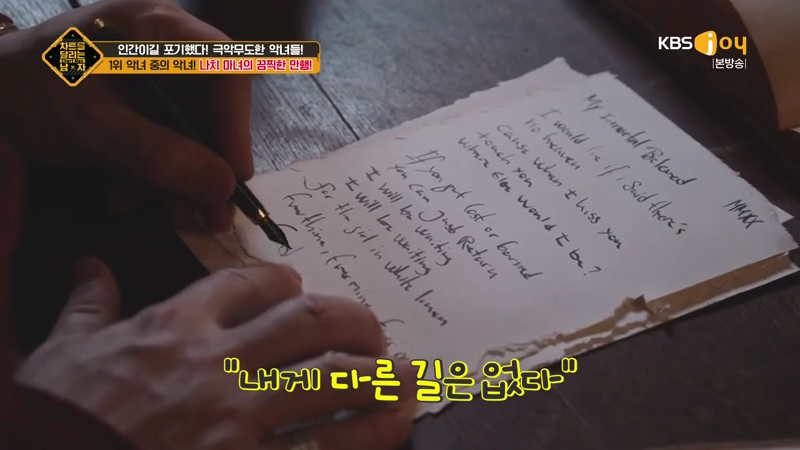 차트를
달리는
남×자
인간이길 포기했다! 극악무도한 악녀들!
1위 악녀 중의 악녀! 나치 마녀의 끔찍한 만행!
KBS joy
|본방송|
My Immortal Beloved
I would lie if i said there's
no heaven
Cause when I kiss you
touch you
where else would I be?
If you get lost or bound
You can just Return
I will be waiting
I will be waiting
For the girl in white linen
"내게 다른 길은 없다"